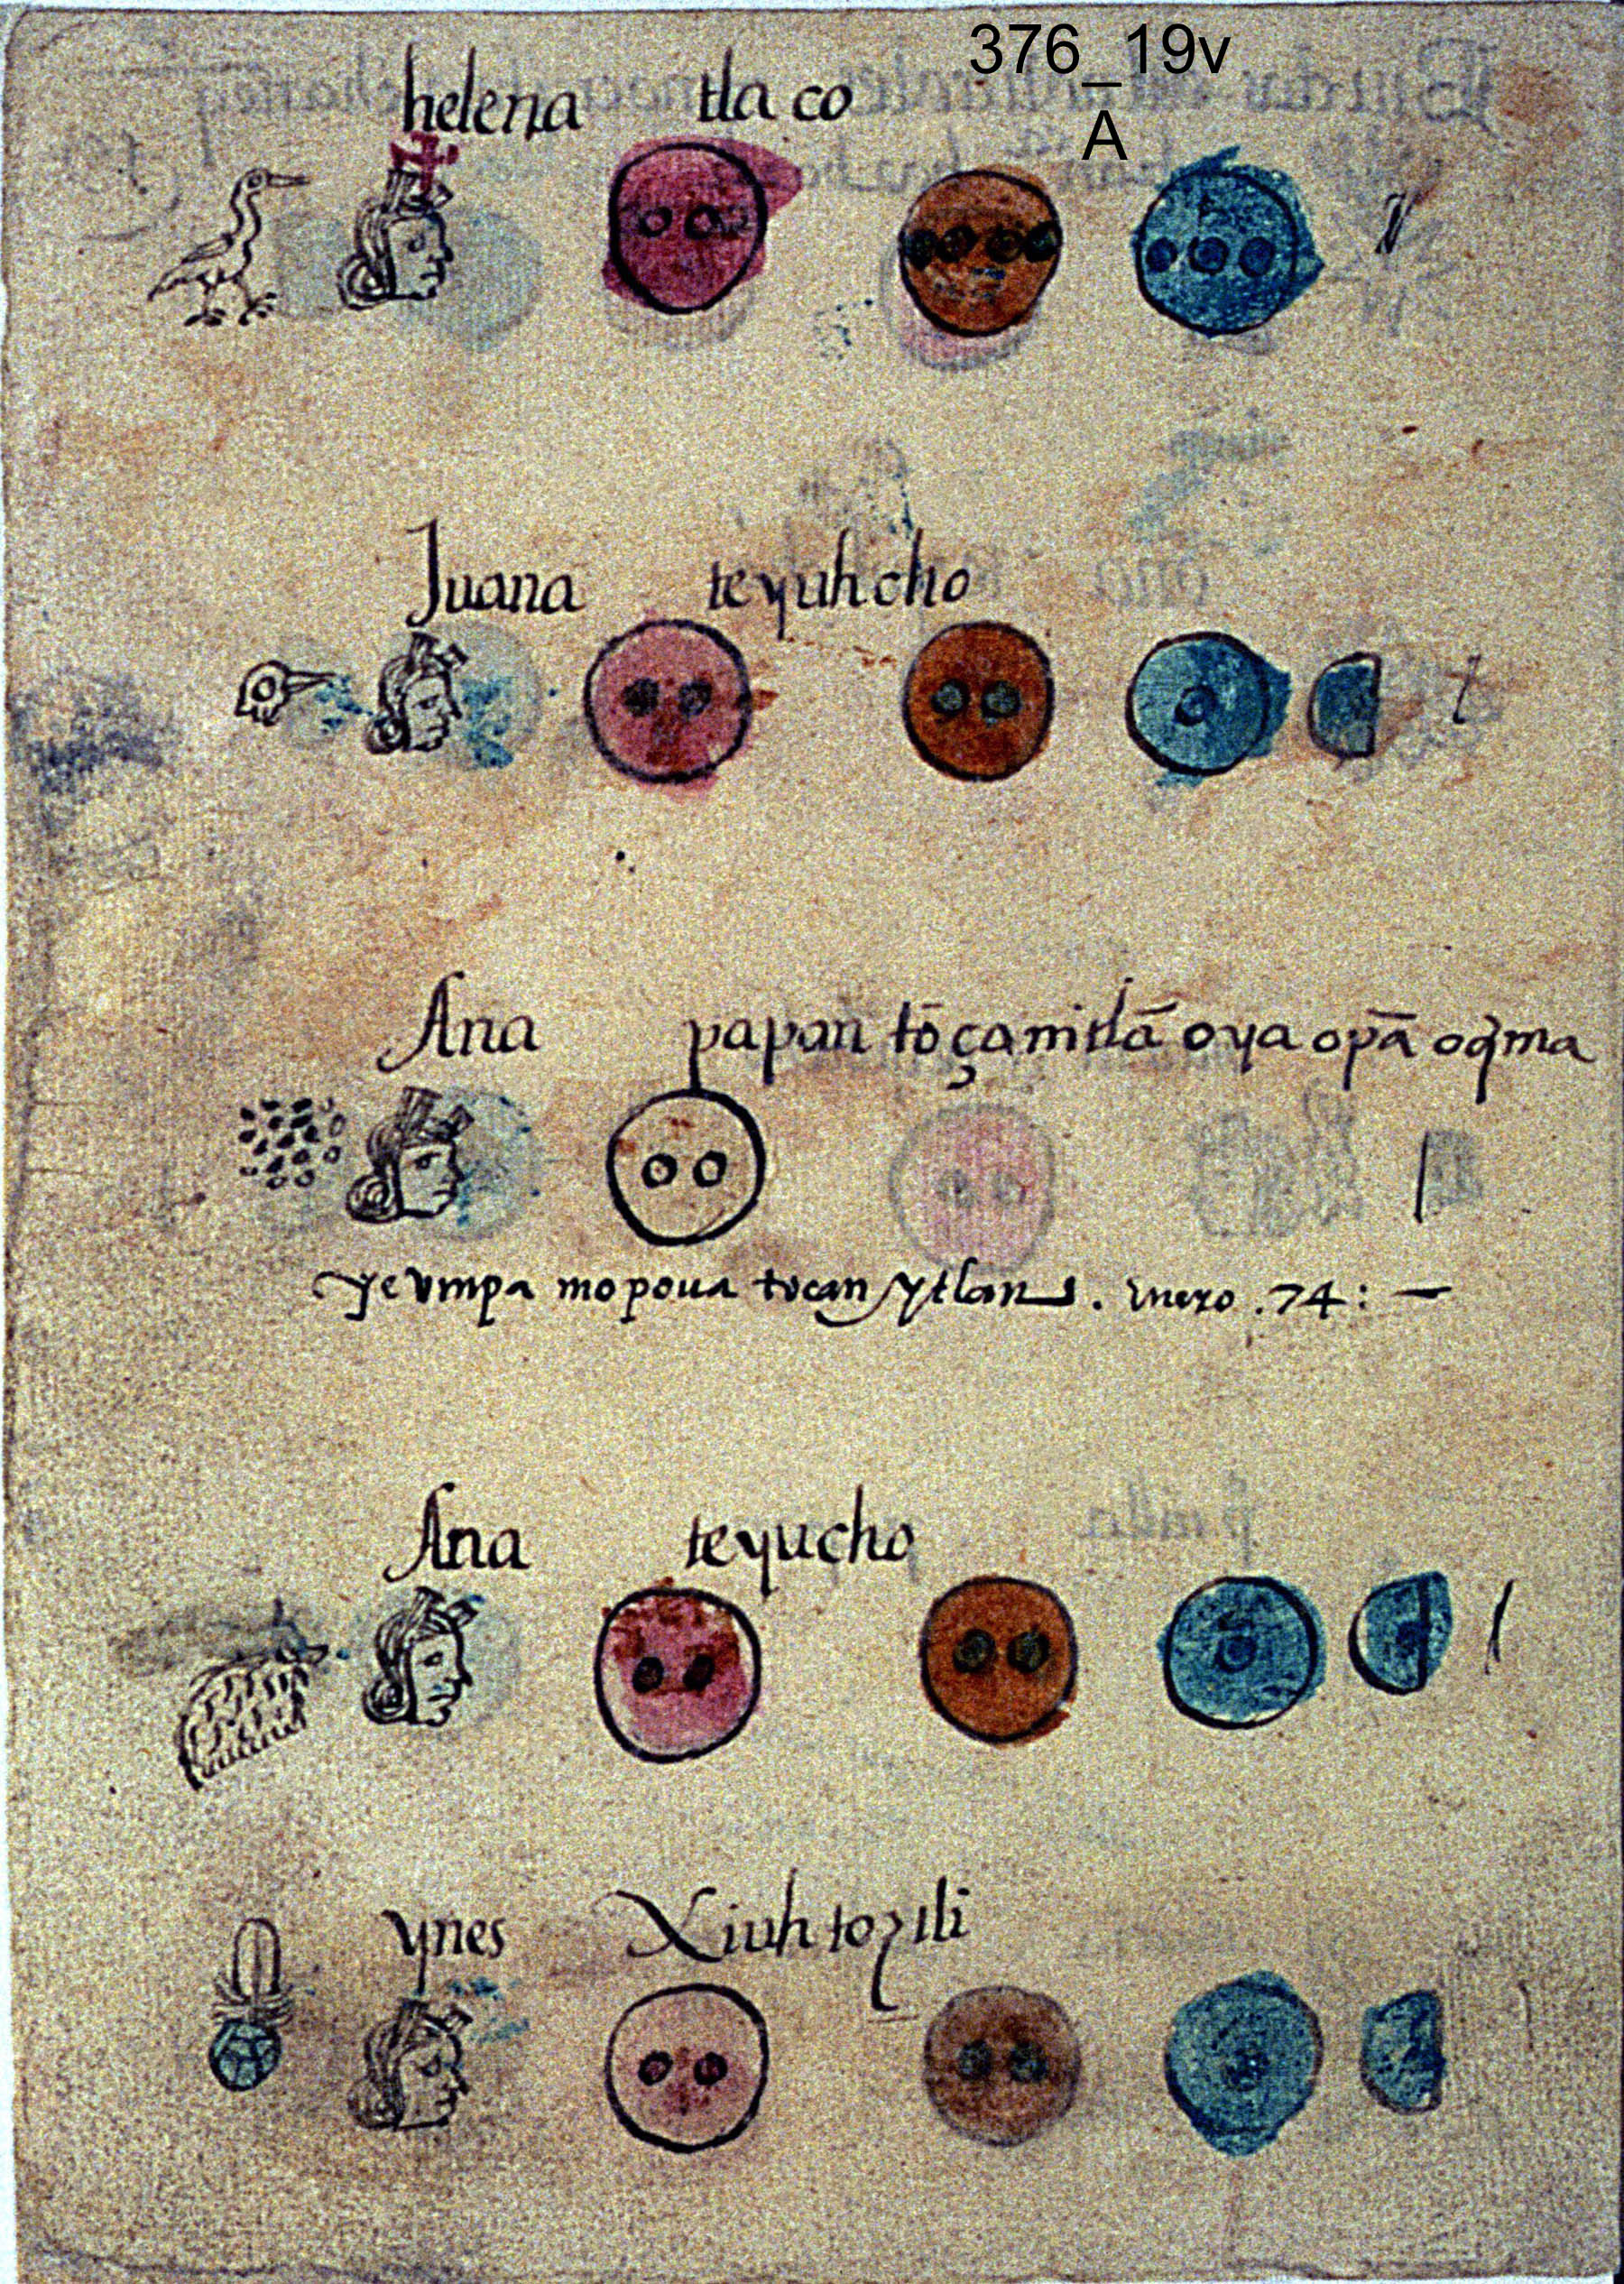 376_19v
A
helena tlaco
Juana teyuhcho
Ana papan tōçamitlā oya opā oq̄ma
ye vmpa mopoua tocan ytlan . enero . 74 : —
Ana teyucho
ynes Xiuhtozili